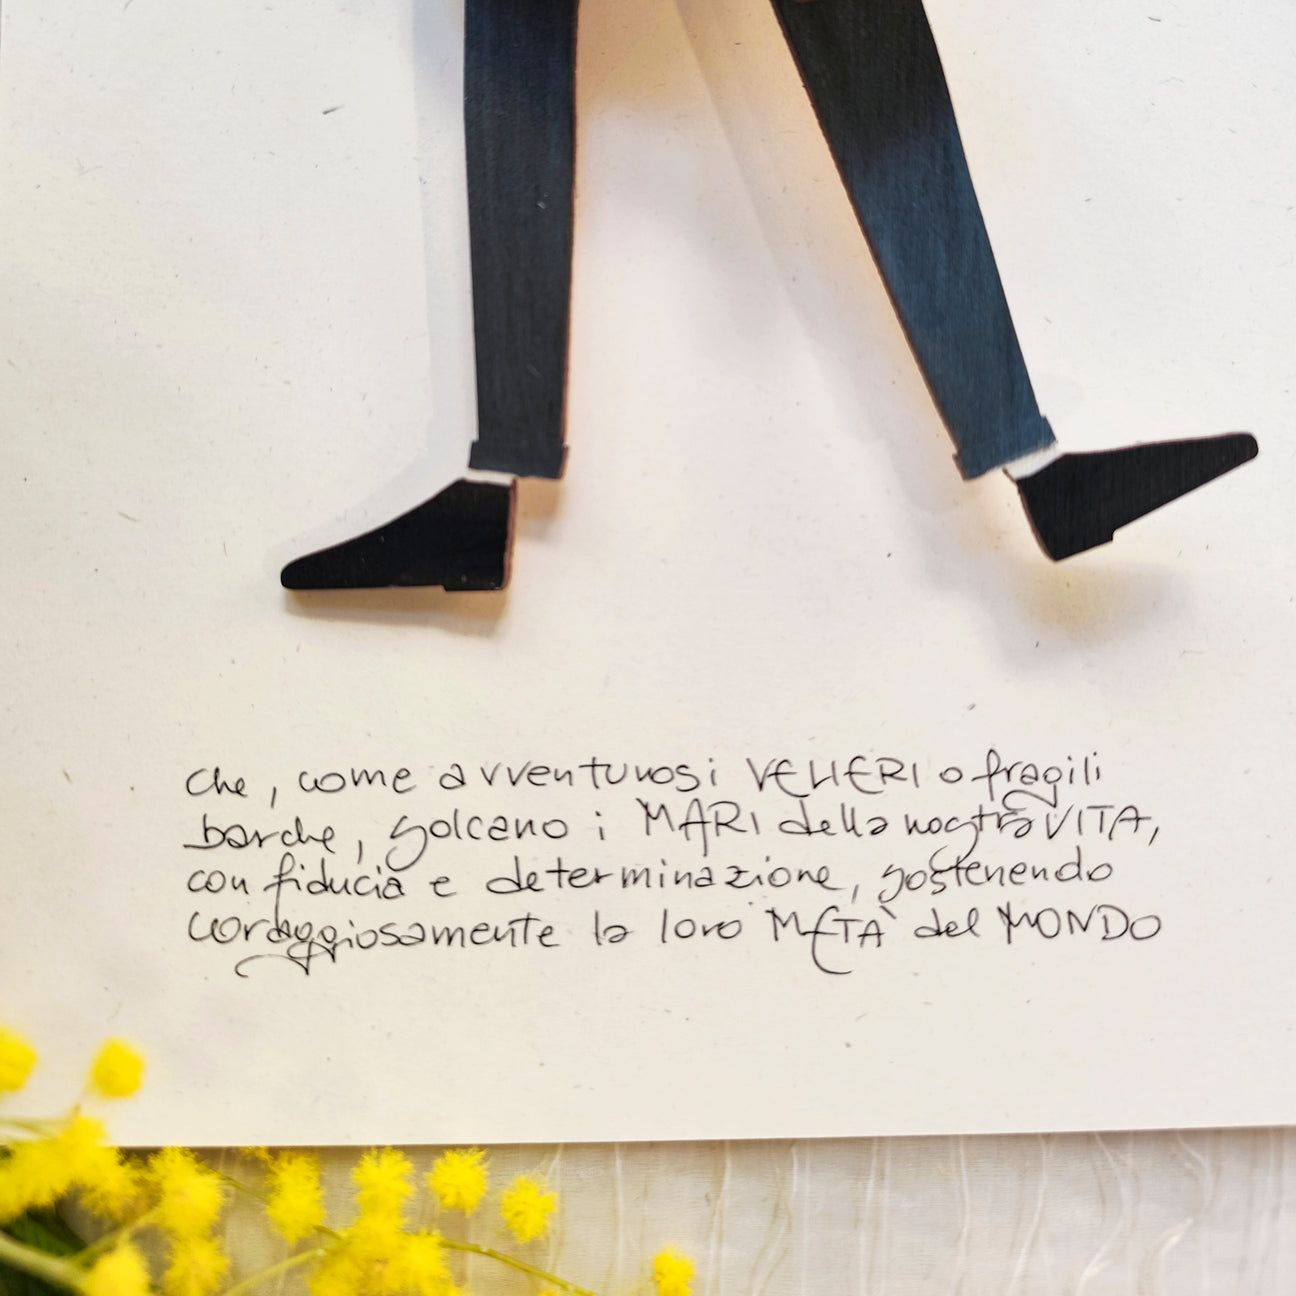 che, come avventurosi VELIERI o fragili
barche, solcano i MARI della nostra VITA,
con fiducia e determinazione, sostenendo
coraggiosamente la loro METÀ del MONDO